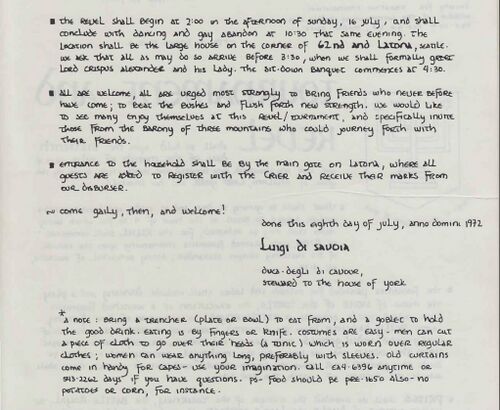 ▪ the revel shall begin at 2:00 in the afternoon of sunday, 16 july, and shall
conclude with dancing and gay abandon at 10:30 that same evening. the
location shall be the large house on the corner of 62nd and Latona, seattle.
we ask that all as may do so arrive before 3:30, when we shall formally greet
Lord crispus alexander and his lady. the sit-down banquet commences at 4:30.
▪ all are welcome, all are urged most strongly to bring friends who never before
have come; to beat the bushes and flush forth new strength. we would like
to see many enjoy themselves at this revel/tournament, and specifically invite
those from the barony of three mountains who could journey forth with
their friends.
▪ entrance to the household shall be by the main gate on Latona, where all
guests are asked to register with the crier and receive their marks from
our disburser.
~ come gaily, then, and welcome!
done this eighth day of july, anno domini 1972
Luigi di savoia
duca-degli di cavour,
steward to the house of york
* a note: bring a trencher (plate or bowl) to eat from, and a goblet to hold
the good drink. eating is by fingers or knife. costumes are easy - men can cut
a piece of cloth to go over their heads (a tunic) which is worn over regular
clothes; women can wear anything long, preferably with sleeves. old curtains
come in handy for capes - use your imagination. call 6396 anytime or
2262 days if you have questions. ps - food should be pre-1650 also - no
potatoes or corn, for instance.